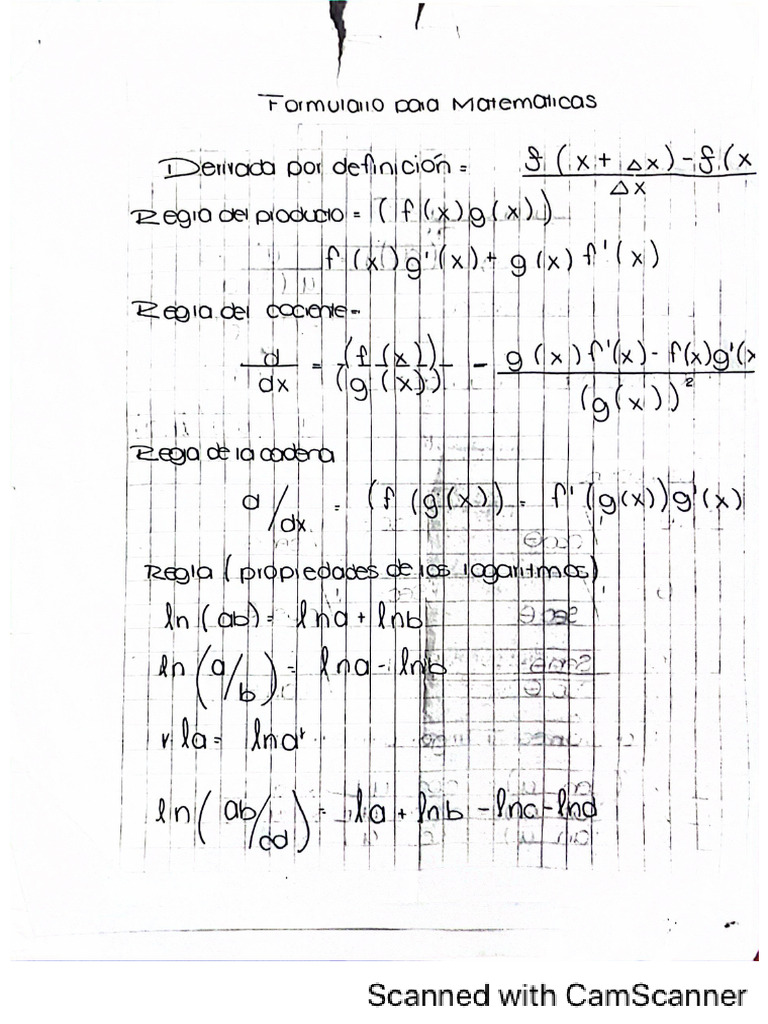 Formulario para Matematicas
Derivada por definición = f(x + Δx) - f(x
Δx
Regla del producto = (f(x)g(x))
f(x)g'(x) + g(x)f'(x)
Regla del cociente =
d/dx = (f(x))/(g(x)) - g(x)f'(x) - f(x)g'(x
(g(x))²
Rega de la cadena
d/dx = (f(g(x)) = f'(g(x))g'(x)
Regla (propiedades de los logaritmos)
ln(ab) = lna + lnb
ln(a/b) = lna - lnb
r la = lnaʳ
ln(ab/cd) = la + lnb - lnc - lnd
Scanned with CamScanner